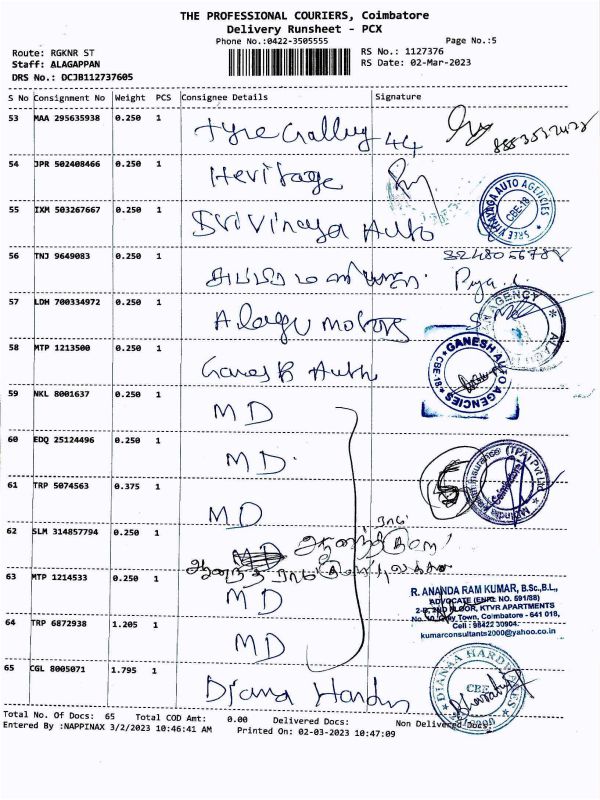 THE PROFESSIONAL COURIERS, Coimbatore
Delivery Runsheet - PCX
Phone No.:0422-3505555 Page No.:5
Route: RGKNR ST RS No.: 1127376
Staff: ALAGAPPAN RS Date: 02-Mar-2023
DRS No.: DCJB112737605
S No Consignment No Weight PCS Consignee Details Signature
53 MAA 295635938 0.250 1 Tyre Gallery 44
54 JPR 502408466 0.250 1 Heritage
55 IXM 503267667 0.250 1 Sri Vinayaga Auto
SREE VINAYAGA AUTO AGENCIES CBE-18
56 TNJ 9649083 0.250 1
57 LDH 700334972 0.250 1 Alagu motors
AGENCY
58 MTP 1213500 0.250 1 Ganesh Auto
GANESH AUTO AGENCIES CBE-18
59 NKL 8001637 0.250 1 MD
60 EDQ 25124496 0.250 1 MD
61 TRP 5074563 0.375 1 MD
(TPA) Pvt Ltd Coimbatore
62 SLM 314857794 0.250 1
63 MTP 1214533 0.250 1 MD
R. ANANDA RAM KUMAR, B.Sc.,B.L.,
ADVOCATE (ENRL NO. 591/88)
2-B, 2ND FLOOR, KTVR APARTMENTS
Town, Coimbatore - 641 018,
Cell : 98422 30904.
kumarconsultants2000@yahoo.co.in
64 TRP 6872938 1.205 1 MD
65 CGL 8005071 1.795 1 Diana Hardw
DIANNA HARDWARES CBE
Total No. Of Docs: 65 Total COD Amt: 0.00 Delivered Docs: Non Delivered Docs:
Entered By :NAPPINAX 3/2/2023 10:46:41 AM Printed On: 02-03-2023 10:47:09